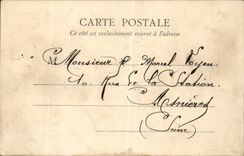 CARTE POSTALE
Ce côté est exclusivement réservé à l'adresse
M Monsieur Marcel Voyen
10 Rue de la Station
Asnières
(Seine)